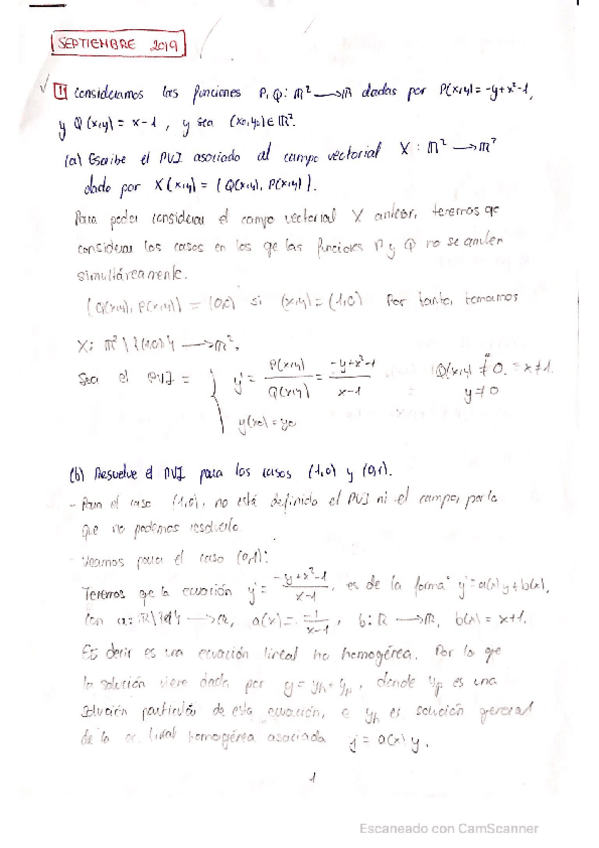 SEPTIEMBRE 2019
1 Consideramos las funciones P, Q: ℝ² → ℝ dadas por P(x,y) = -y+x²-1,
y Q(x,y) = x-1, y sea (x₀,y₀) ∈ ℝ².
(a) Escribe el PVI asociado al campo vectorial X: ℝ² → ℝ²
dado por X(x,y) = (Q(x,y), P(x,y)).
Para poder considerar el campo vectorial X anterior, tenemos qe
considerar los casos en los qe las funciones P y Q no se anulen
simultáneamente.
(Q(x,y), P(x,y)) = (0,0) si (x,y) = (1,0) Por tanto, tomamos
X: ℝ²\{(1,0)} → ℝ².
Sea el PVI = { y' = P(x,y)/Q(x,y) = -y+x²-1/x-1 Q(x,y) ≠ 0. = x≠1.
y≠0
y(x₀) = y₀
(b) Resuelve el PVI para los casos (1,0) y (0,1).
- Para el caso (1,0), no está definido el PVI ni el campo, por lo
que no podemos resolverlo.
- Veamos para el caso (0,1):
Tenemos qe la ecuación y' = -y+x²-1/x-1, es de la forma y' = a(x)y+b(x),
con a: ℝ\{1} → ℝ, a(x) = -1/x-1, b: ℝ → ℝ, b(x) = x+1.
Es decir es una ecuación lineal no homogénea. Por lo qe
la solución viene dada por y = yh+yp, donde yp es una
solución particular de esta ecuación, e yh es solución general
de la ec. lineal homogénea asociada y' = a(x)y.
1
Escaneado con CamScanner